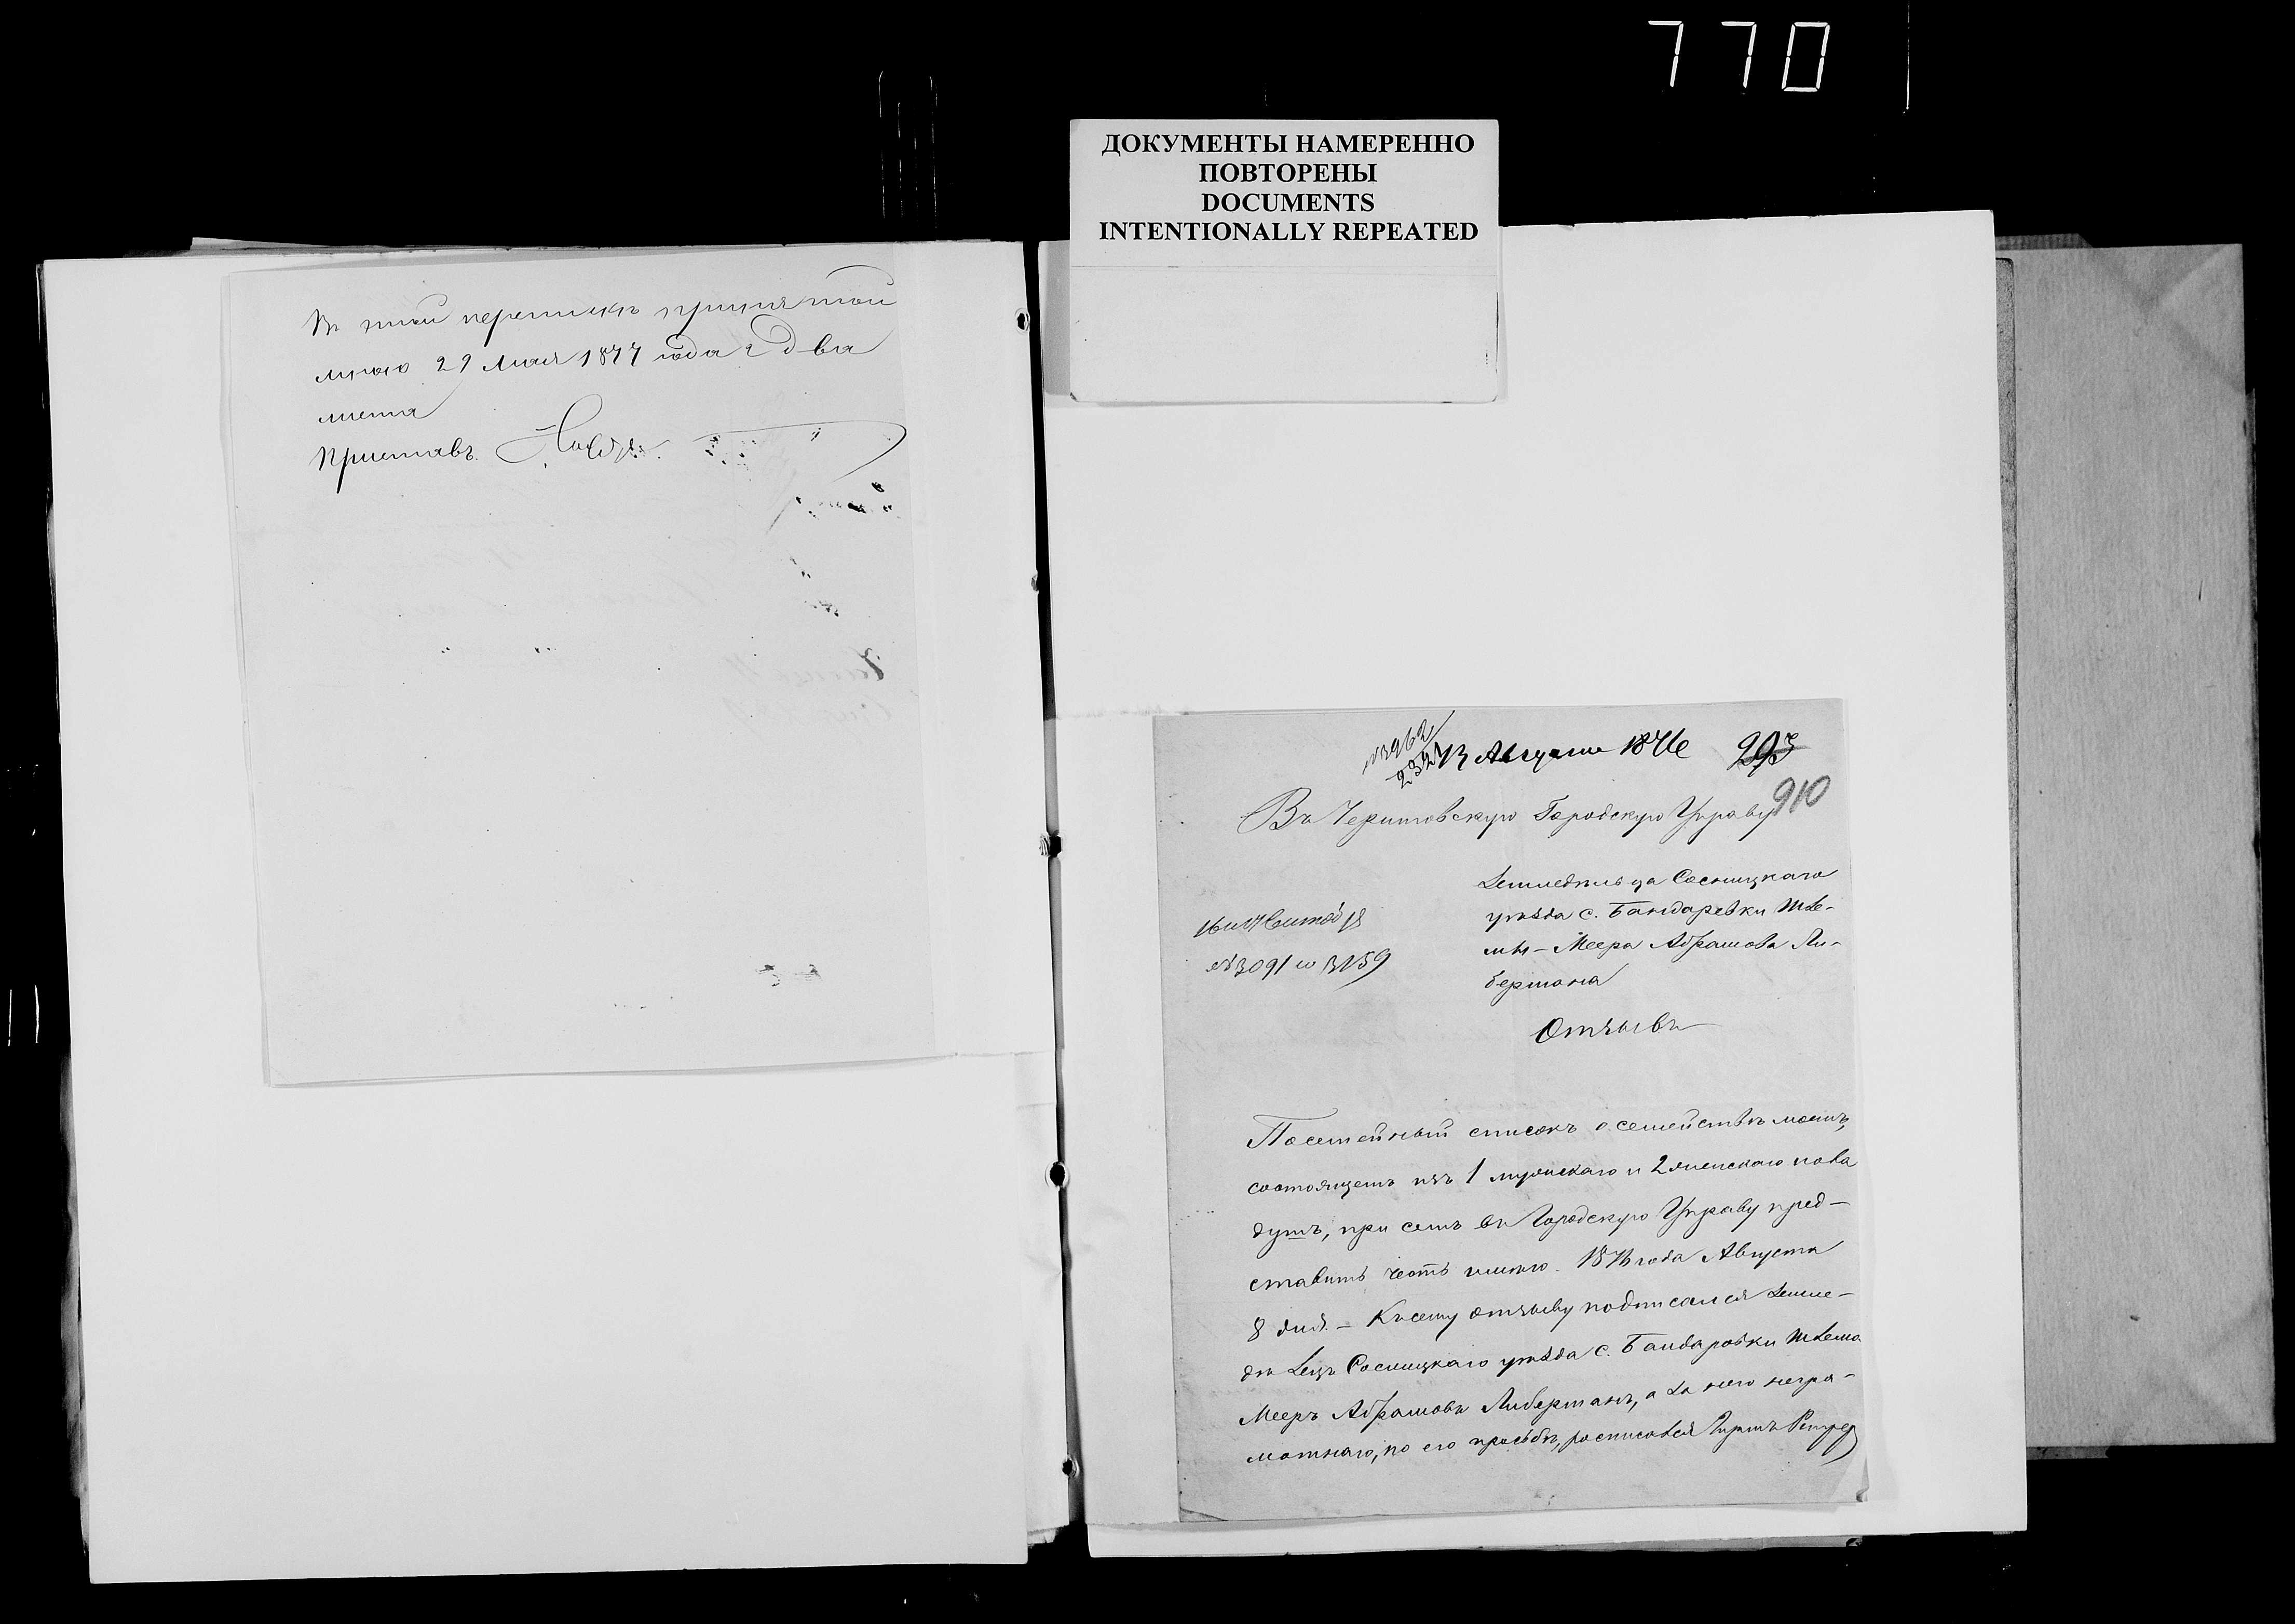 770
ДОКУМЕНТЫ НАМЕРЕННО
ПОВТОРЕНЫ
DOCUMENTS
INTENTIONALLY REPEATED
Въ этой перепискѣ принятой
мною 29 Мая 1877 года 2 два
листа
Приставъ
№ 3962
2327
13 Августа 1876
293
910
Въ Черниговскую Городскую Управу
Земледѣльца Сосницкаго
уѣзда с. Бандаревки Шле-
мы-Меера Абрамова Ли-
бермана
16 и 17 Сентября
№ 3091 и 3159
Отзывъ
Посемейный списокъ о семействѣ моемъ,
состоящемъ изъ 1 мужскаго и 2 женскаго пола
душъ, при семъ въ Городскую Управу пред-
ставить честь имѣю. 1876 года Августа
8 дня. - Къ сему отзыву подписался земле-
дѣлецъ Сосницкаго уѣзда с. Бандаровки Шлема
Мееръ Абрамовъ Либерманъ, а за него негра-
мотнаго, по его просьбѣ, росписался Гиршъ